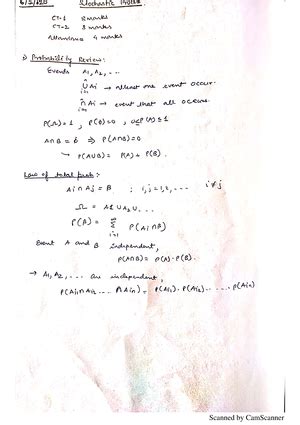 6/2/23
Stochastic
CT-1 8 marks
CT-2 8 marks
Attendance 4 marks
1) Probability Review:
Events A1, A2, ...
n ∪ i=1 Ai → atleast one event occur.
n ∩ i=1 Ai → event that all occurs.
P(Ω) = 1 ; P(∅) = 0 , 0≤P(A)≤1
A∩B = ∅ ⇒ P(A∩B) = 0
→ P(A∪B) = P(A) + P(B).
Law of total prob:-
Ai ∩ Aj = ∅ : i,j = 1,2, ... i≠j
Ω = A1 ∪ A2 ∪ ...
P(B) = ∞ Σ i=1 P(Ai ∩ B)
Event A and B independent,
P(A∩B) = P(A)·P(B).
→ A1, A2, ... are independent
P(Ai1 ∩ Ai2 ... ∩ Ain) = P(Ai1) · P(Ai2) ... P(Ain)
Scanned by CamScanner